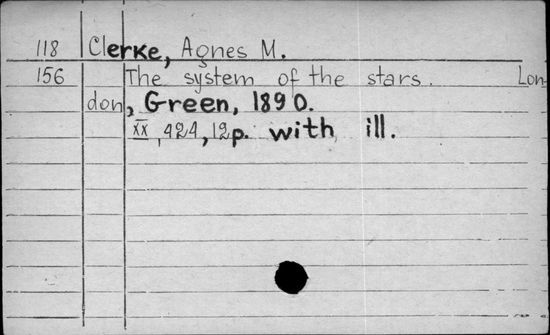 118 Clerke, Agnes M.
156 The system of the stars. Lon-
don, Green, 1890.
XX, 424, 12p. with ill.